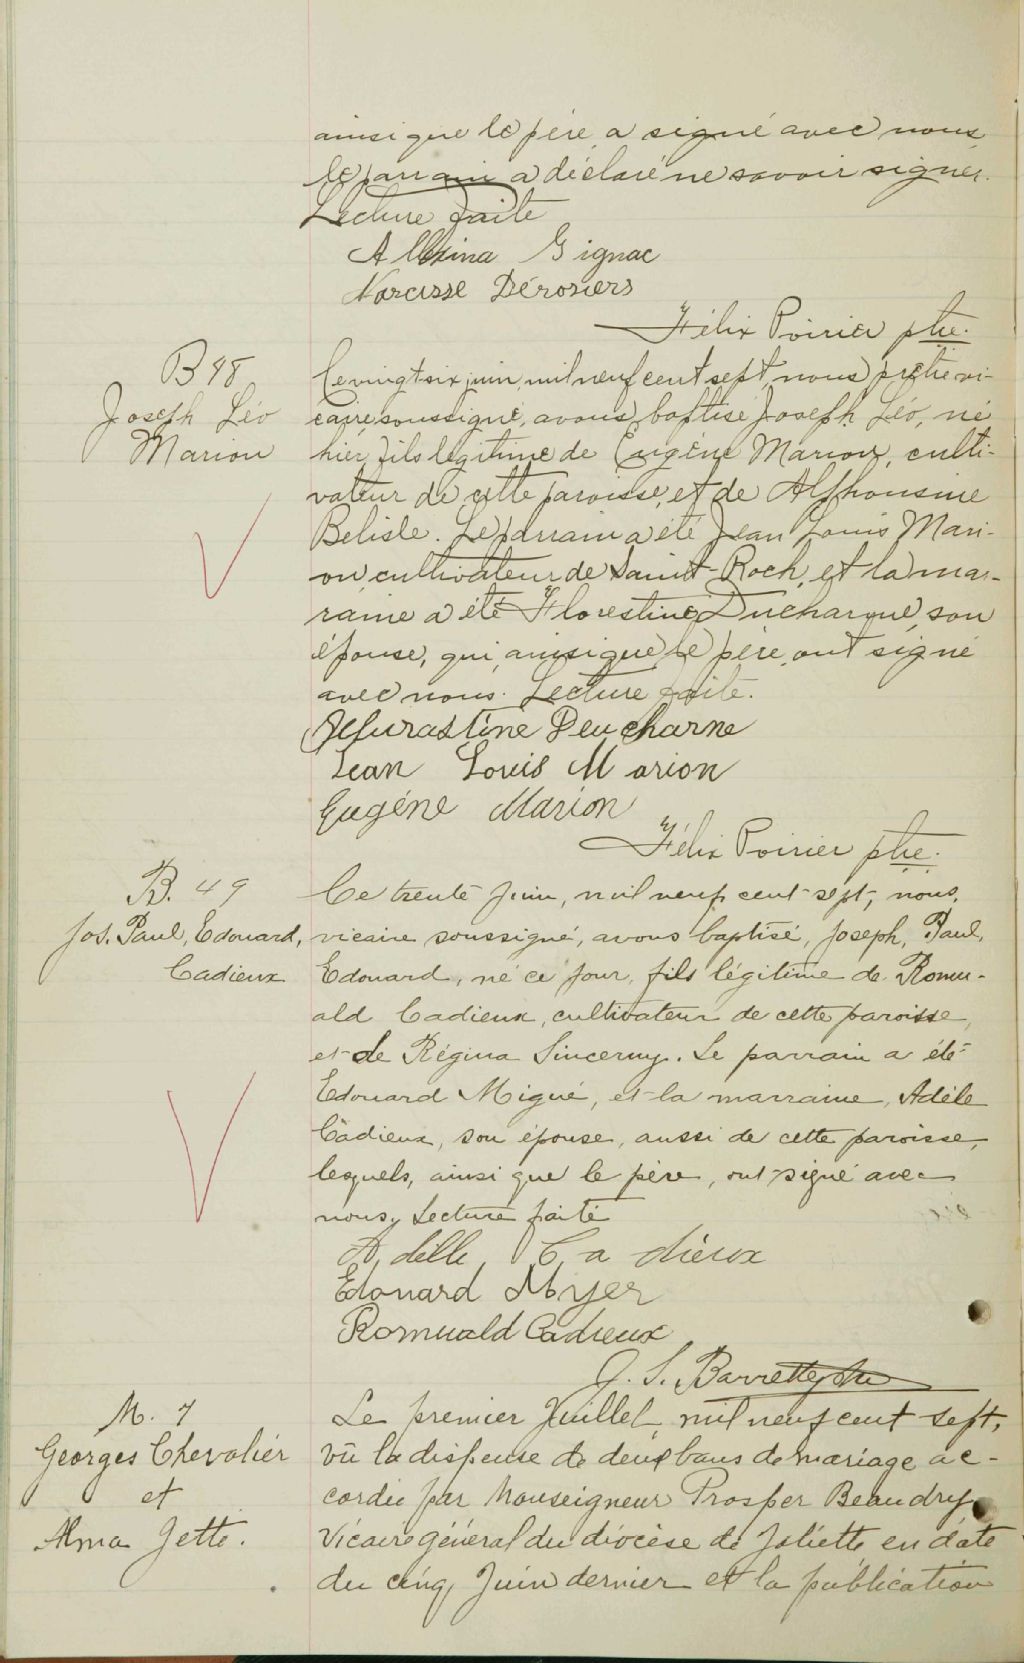 ainsi que le père, a signé avec nous,
le parrain a déclaré ne savoir signer.
Lecture faite
Albina Gignac
Narcisse Dérosiers
Félix Poirier ptre.
B 48
Joseph Léo
Marion
Ce vingt six juin, mil neuf cent sept, nous prêtre vi-
caire soussigné, avons baptisé Joseph, Léo, né
hier, fils légitime de Eugène Marion, culti-
vateur de cette paroisse, et de Alphonsine
Belisle. Le parrain a été Jean Louis Mari-
on cultivateur de Saint-Roch, et la mar-
raine a été Florestine Ducharme, son
épouse, qui, ainsi que le père, ont signé
avec nous. Lecture faite.
Deucharne
Jean Louis Marion
Eugéne Marion
Félix Poirier ptre.
B. 49
Jos. Paul, Edouard,
Cadieux
Ce trente Juin, mil neuf cent sept, nous,
vicaire soussigné, avons baptisé, Joseph, Paul,
Edouard, né ce jour, fils légitime de Romu-
ald Cadieux, cultivateur de cette paroisse,
et de Régina Sincerny. Le parrain a été
Edouard Migué, et la marraine, Adèle
Cadieux, son épouse, aussi de cette paroisse,
lesquels, ainsi que le père, ont signé avec
nous, Lecture faite
Adelle Cadieux
Edouard Myer
Romuald Cadieux
J. S. Barrette ptre
M. 7
Georges Chevalier
et
Alma Jetté.
Le premier Juillet, mil neuf cent sept,
vû la dispense de deux bans de mariage ac-
cordée par Monseigneur Prosper Beaudry
Vicaire général du diocèse de Joliette en date
du cinq, Juin dernier et la publication